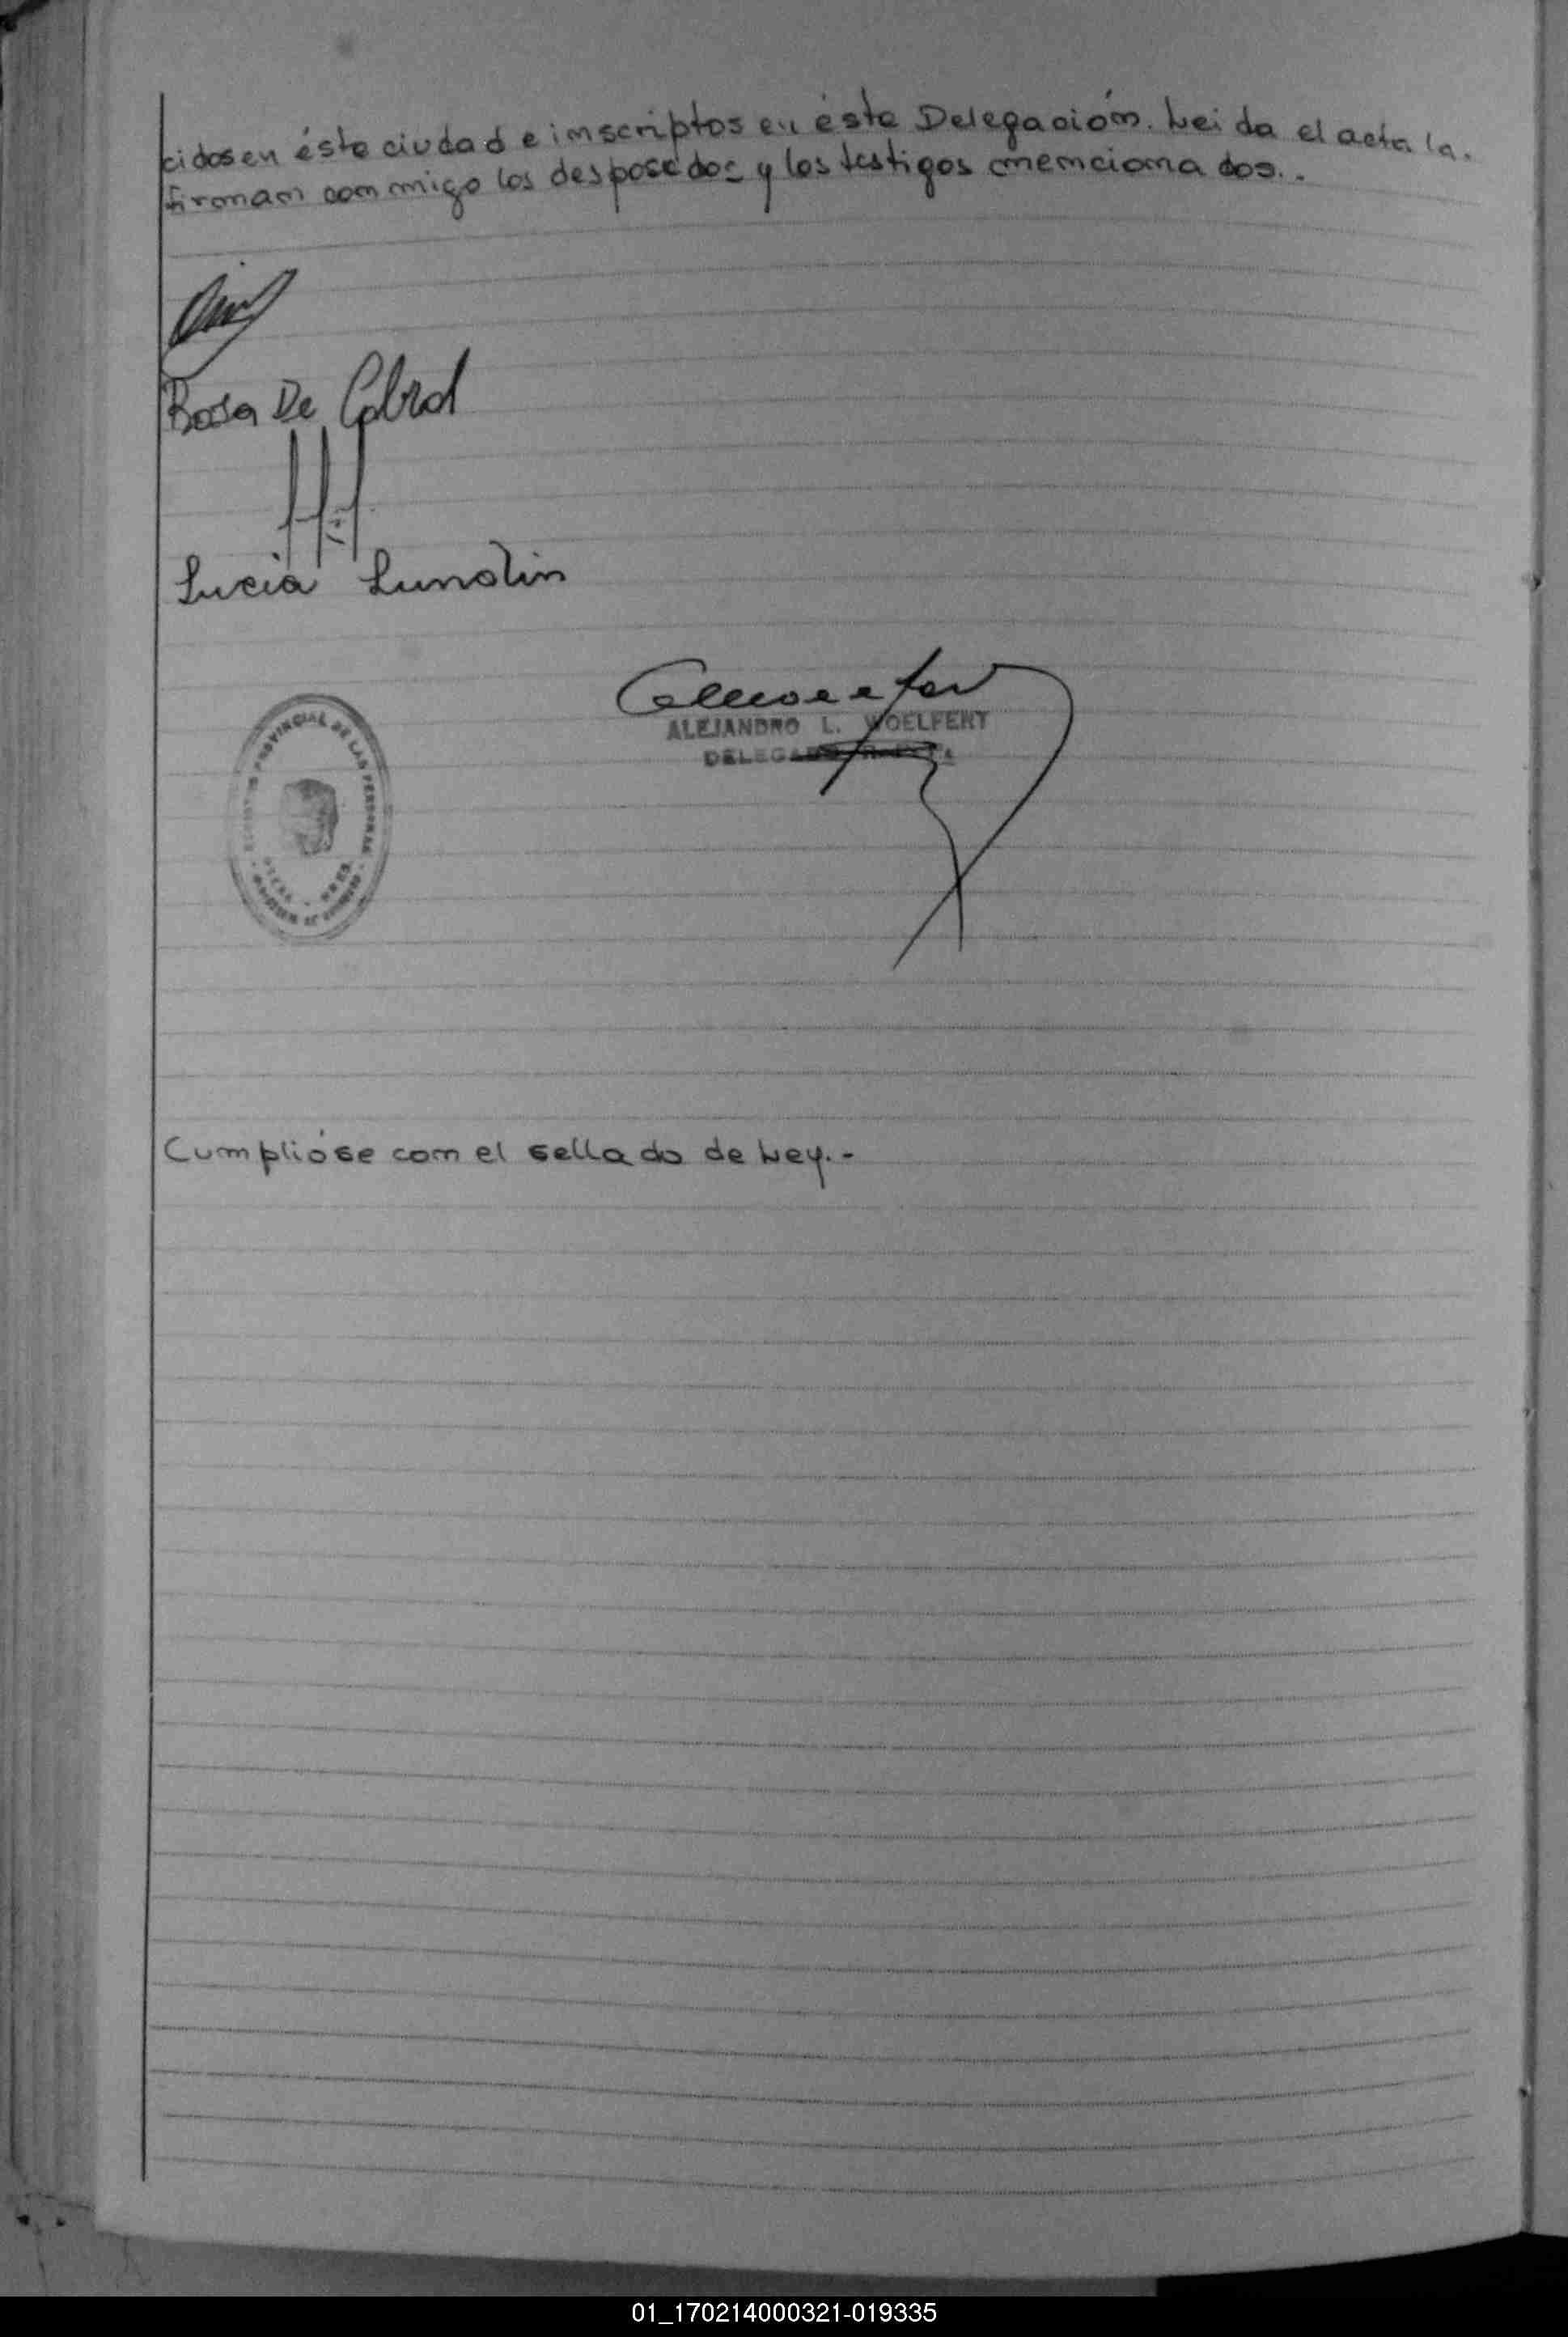 cidos en ésta ciudad e inscriptos en ésta Delegación. Leida el acta la.
firman conmigo los desposados y los testigos mencionados..
Rosa De Cabral
Lucia Lunolin
ALEJANDRO L. WOELFERT
DELEGADO
PROVINCIAL DE LAS PERSONAS
Cumplióse con el sellado de Ley.-
01_170214000321-019335